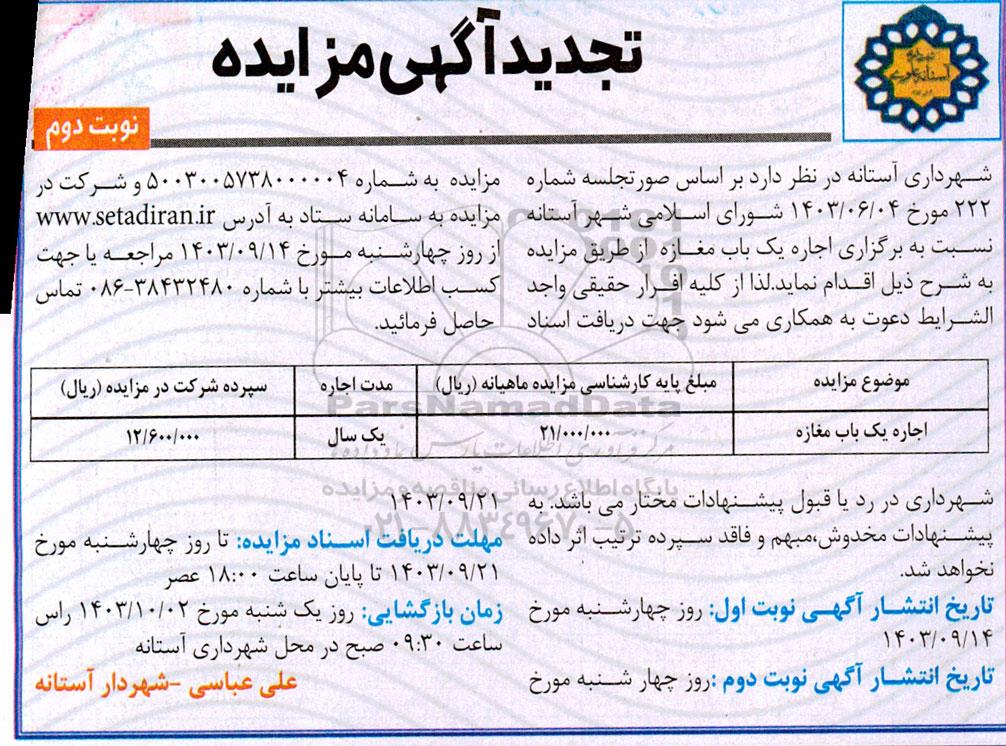 تجدید آگهی مزایده
نوبت دوم
شهرداری آستانه در نظر دارد بر اساس صورتجلسه شماره
۲۲۲ مورخ ۱۴۰۳/۰۶/۰۴ شورای اسلامی شهر آستانه
نسبت به برگزاری اجاره یک باب مغازه از طریق مزایده
به شرح ذیل اقدام نماید.لذا از کلیه افراد حقیقی واجد
الشرایط دعوت به همکاری می شود جهت دریافت اسناد
مزایده به شماره ۵۰۰۳۰۰۵۷۳۸۰۰۰۰۰۴ و شرکت در
مزایده به سامانه ستاد به آدرس www.setadiran.ir
از روز چهارشنبه مورخ ۱۴۰۳/۰۹/۱۴ مراجعه یا جهت
کسب اطلاعات بیشتر با شماره ۳۸۴۳۲۴۸۰-۰۸۶ تماس
حاصل فرمائید.
موضوع مزایده مبلغ پایه کارشناسی مزایده ماهیانه (ریال) مدت اجاره سپرده شرکت در مزایده (ریال)
اجاره یک باب مغازه ۲۱/۰۰۰/۰۰۰ یک سال ۱۲/۶۰۰/۰۰۰
ParsNamadData
پایگاه اطلاع رسانی مناقصه و مزایده
۰۲۱-۸۸۳۴۹۶۷۰-۵
شهرداری در رد یا قبول پیشنهادات مختار می باشد. به
پیشنهادات مخدوش،مبهم و فاقد سپرده ترتیب اثر داده
نخواهد شد.
تاریخ انتشار آگهی نوبت اول: روز چهارشنبه مورخ
۱۴۰۳/۰۹/۱۴
تاریخ انتشار آگهی نوبت دوم :روز چهار شنبه مورخ
۱۴۰۳/۰۹/۲۱
مهلت دریافت اسناد مزایده: تا روز چهارشنبه مورخ
۱۴۰۳/۰۹/۲۱ تا پایان ساعت ۱۸:۰۰ عصر
زمان بازگشایی: روز یک شنبه مورخ ۱۴۰۳/۱۰/۰۲ راس
ساعت ۰۹:۳۰ صبح در محل شهرداری آستانه
علی عباسی -شهردار آستانه